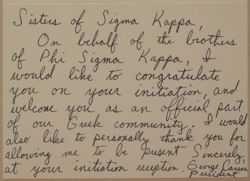 Sisters of Sigma Kappa,
On behalf of the brothers
of Phi Sigma Kappa, I
would like to congratulate
you on your initiation, and
welcome you as an official part
of our Greek community. I would
also like to personally thank you for
allowing me to be present
Sincerely,
at your initiation reception.
George
President